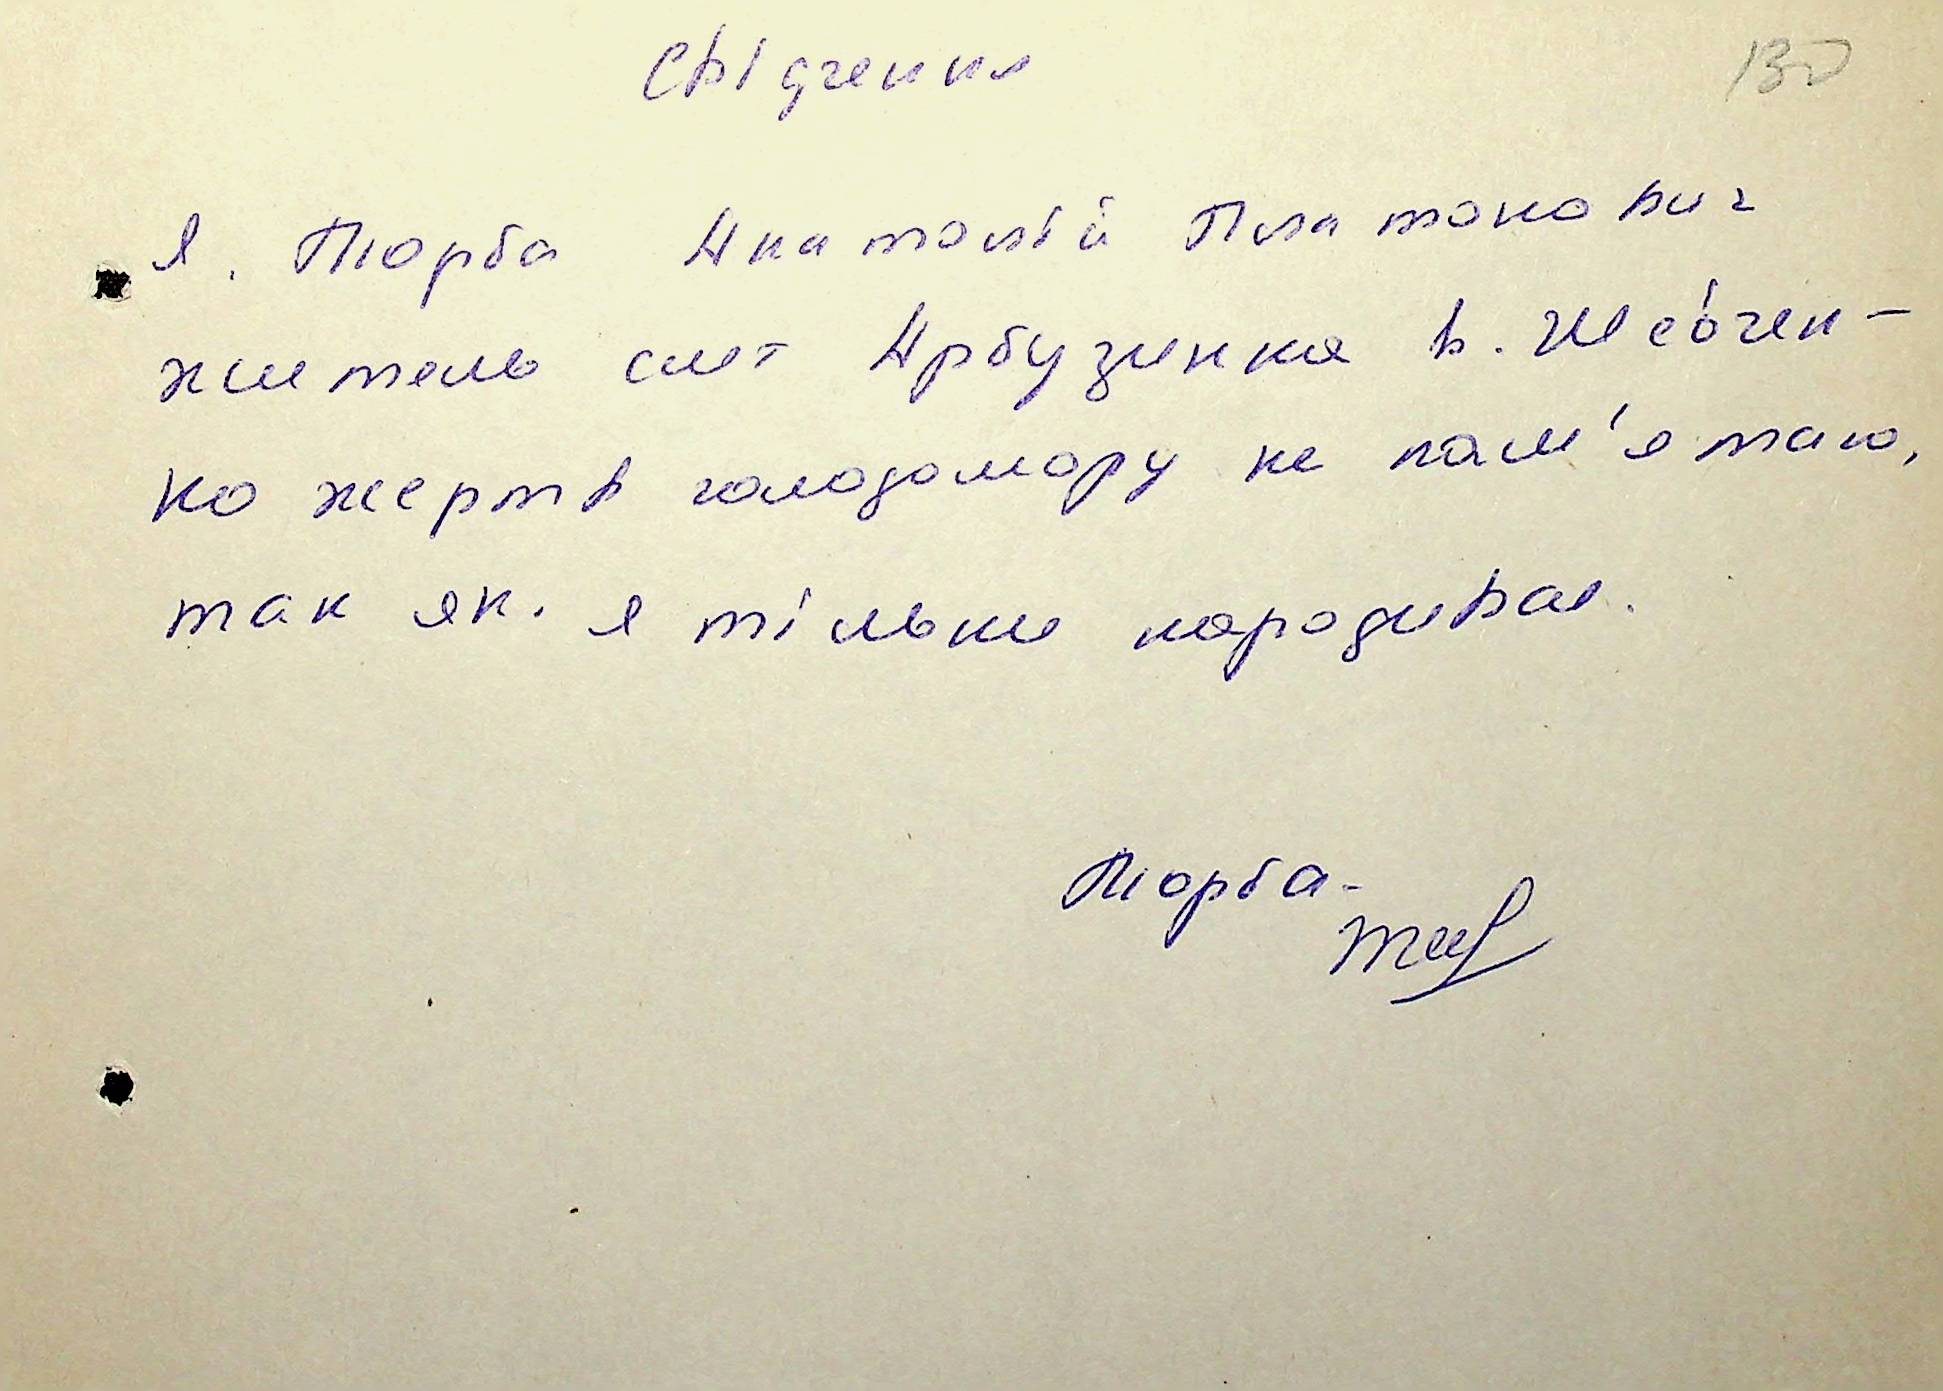 Свідчення
130
Я. Тюрба Анатолій Платонович
житель смт Арбузинка в. Шевчен-
ко жертв голодомору не пам'ятаю,
так як. я тільки народився.
Тюрба-